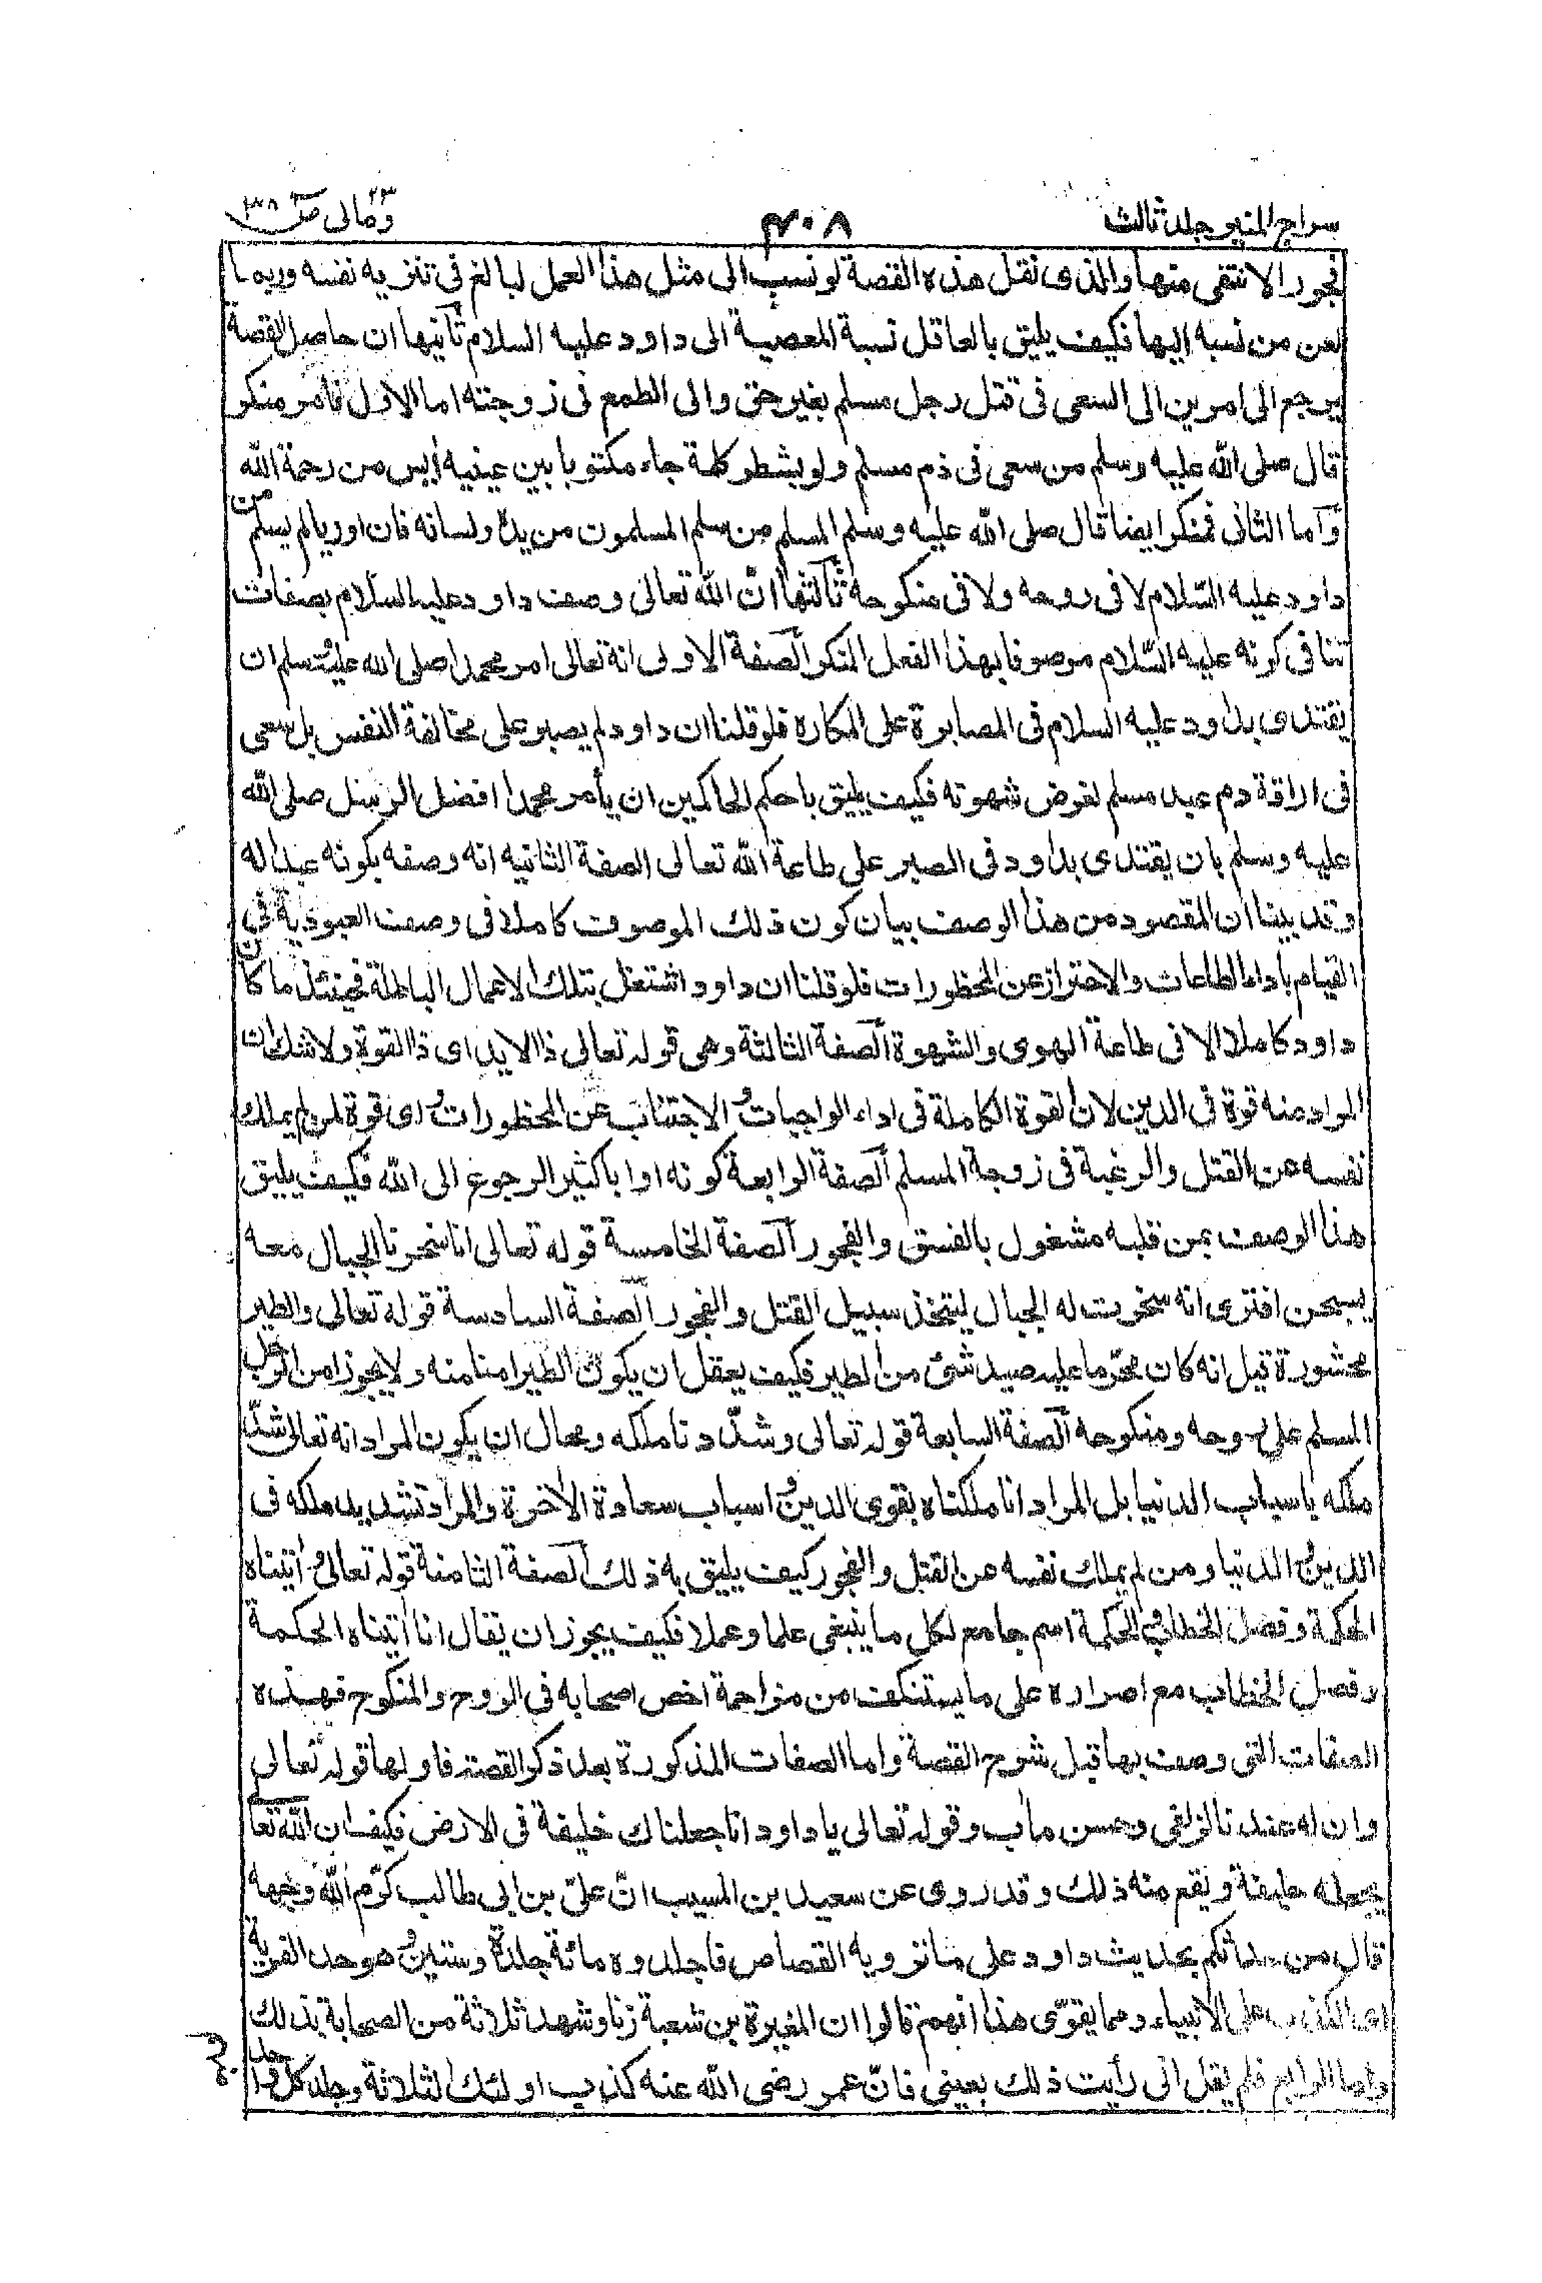 سراج المنير جلد ثالث ٤٠٨ ومالى ٢٣ ص ٣٨
فجورا لا نتفى منها والذى نقل هذه القصة لو نسب الى مثل هذا العمل لبالغ فى تنزيه نفسه وربما
لعن من نسبه اليها فكيف يليق بالعاقل نسبة المعصية الى داود عليه السلام ثانيها ان حاصل القصة
يرجع الى امرين الى السعى فى قتل رجل مسلم بغير حق والى الطمع فى زوجته اما الاول فامر منكر
قال صلى الله عليه وسلم من سعى فى دم مسلم ولو بشطر كلمة جاء مكتوبا بين عينيه أيس من رحمة الله
وأما الثانى فمنكر ايضا قال صلى الله عليه وسلم المسلم من سلم المسلمون من يده ولسانه فان اوريا لم يسلم من
داود عليه السلام لا فى روحه ولا فى منكوحه ثالثها انّ الله تعالى وصف داود عليه السلام بصفات
تنافى كونه عليه السّلام موصوفا بهذا الفعل المنكر الصفة الاولى انه تعالى امر محمدا صلى الله عليه وسلم ان
يقتدى بداود عليه السلام فى المصابرة على المكاره فلو قلنا ان داود لم يصبر على مخالفة النفس بل سعى
فى اراقة دم عبد مسلم لغرض شهوته فكيف يليق باحكم الحاكمين ان يأمر محمدا افضل الرسل صلى الله
عليه وسلم بان يقتدى بداود فى الصبر على طاعة الله تعالى الصفة الثانيه انه وصفه بكونه عبدا له
وقد بينا ان المقصود من هذا الوصف بيان كون ذلك الموصوف كاملا فى وصف العبودية فى
القيام بأداء الطاعات والاحتراز عن المحظورات فلو قلنا ان داود اشتغل بتلك الاعمال الباطلة فحينئذ ما كان
داود كاملا الا فى طاعة الهوى والشهوة الصفة الثالثة وهى قوله تعالى ذا الايد اى ذا القوة ولا شك ان
المراد منه قوة فى الدين لان القوة الكاملة فى اداء الواجبات و الاجتناب عن المحظورات و اى قوة لمن لم يملك
نفسه عن القتل والرغبة فى زوجة المسلم الصفة الرابعة كونه اوابا كثير الرجوع الى الله فكيف يليق
هذا الوصف بمن قلبه مشغول بالفسق والفجور الصفة الخامسة قوله تعالى انا سخرنا الجبال معه
يسبحن افترى انه سخرت له الجبال ليتخذ سبيل القتل والفجور الصفة السادسة قوله تعالى والطير
محشورة قيل انه كان محرّما عليه صيد شئ من الطير فكيف يعقل ان يكون الطير امنا منه ولا يجوز امن الرجل
المسلم على روحه ومنكوحه الصفة السابعة قوله تعالى وشدّدنا ملكه ومحال ان يكون المراد انه تعالى شدّ
ملكه باسباب الدنيا بل المراد انا ملكناه بقوى الدين و اسباب سعادة الأخرة والمراد تشديد ملكه فى
الدين و الدنيا ومن لم يملك نفسه عن القتل والفجور كيف يليق به ذلك الصفة الثامنة قوله تعالى و أتيناه
الحكمة وفصل الخطاب و الحكمة اسم جامع لكل ما ينبغى علما وعملا فكيف يجوز ان يقال انا أتيناه الحكمة
وفصل الخطاب مع اصراره على ما يستنكف من مزاحمة اخص اصحابه فى الروح والمنكوح فهذه
الصفات التى وصف بها قبل شرح القصة واما الصفات المذكورة بعد ذكر القصة فاولها قوله تعالى
وان له عندنا لزلفى وحسن مأب وقوله تعالى يا داود انا جعلناك خليفة فى الارض فكيف ان الله تعا
يجعله خليفة ويقع منه ذلك وقد روى عن سعيد بن المسيب انّ علىّ بن ابى طالب كرّم الله وجهه
قال من حدثكم بحديث داود على ما ترويه القصاص فاجلدوه مائة جلدة وستين و هو حد الفرية
اى الكذب على الانبياء ومما يقوّى هذا انهم قالوا ان المغيرة بن شعبة زنا وشهد ثلاثة من الصحابة بذلك
واما الرابع فلم يقل انى رأيت ذلك بعينى فانّ عمر رضى الله عنه كذب اولئك الثلاثة وجلد كل واحد